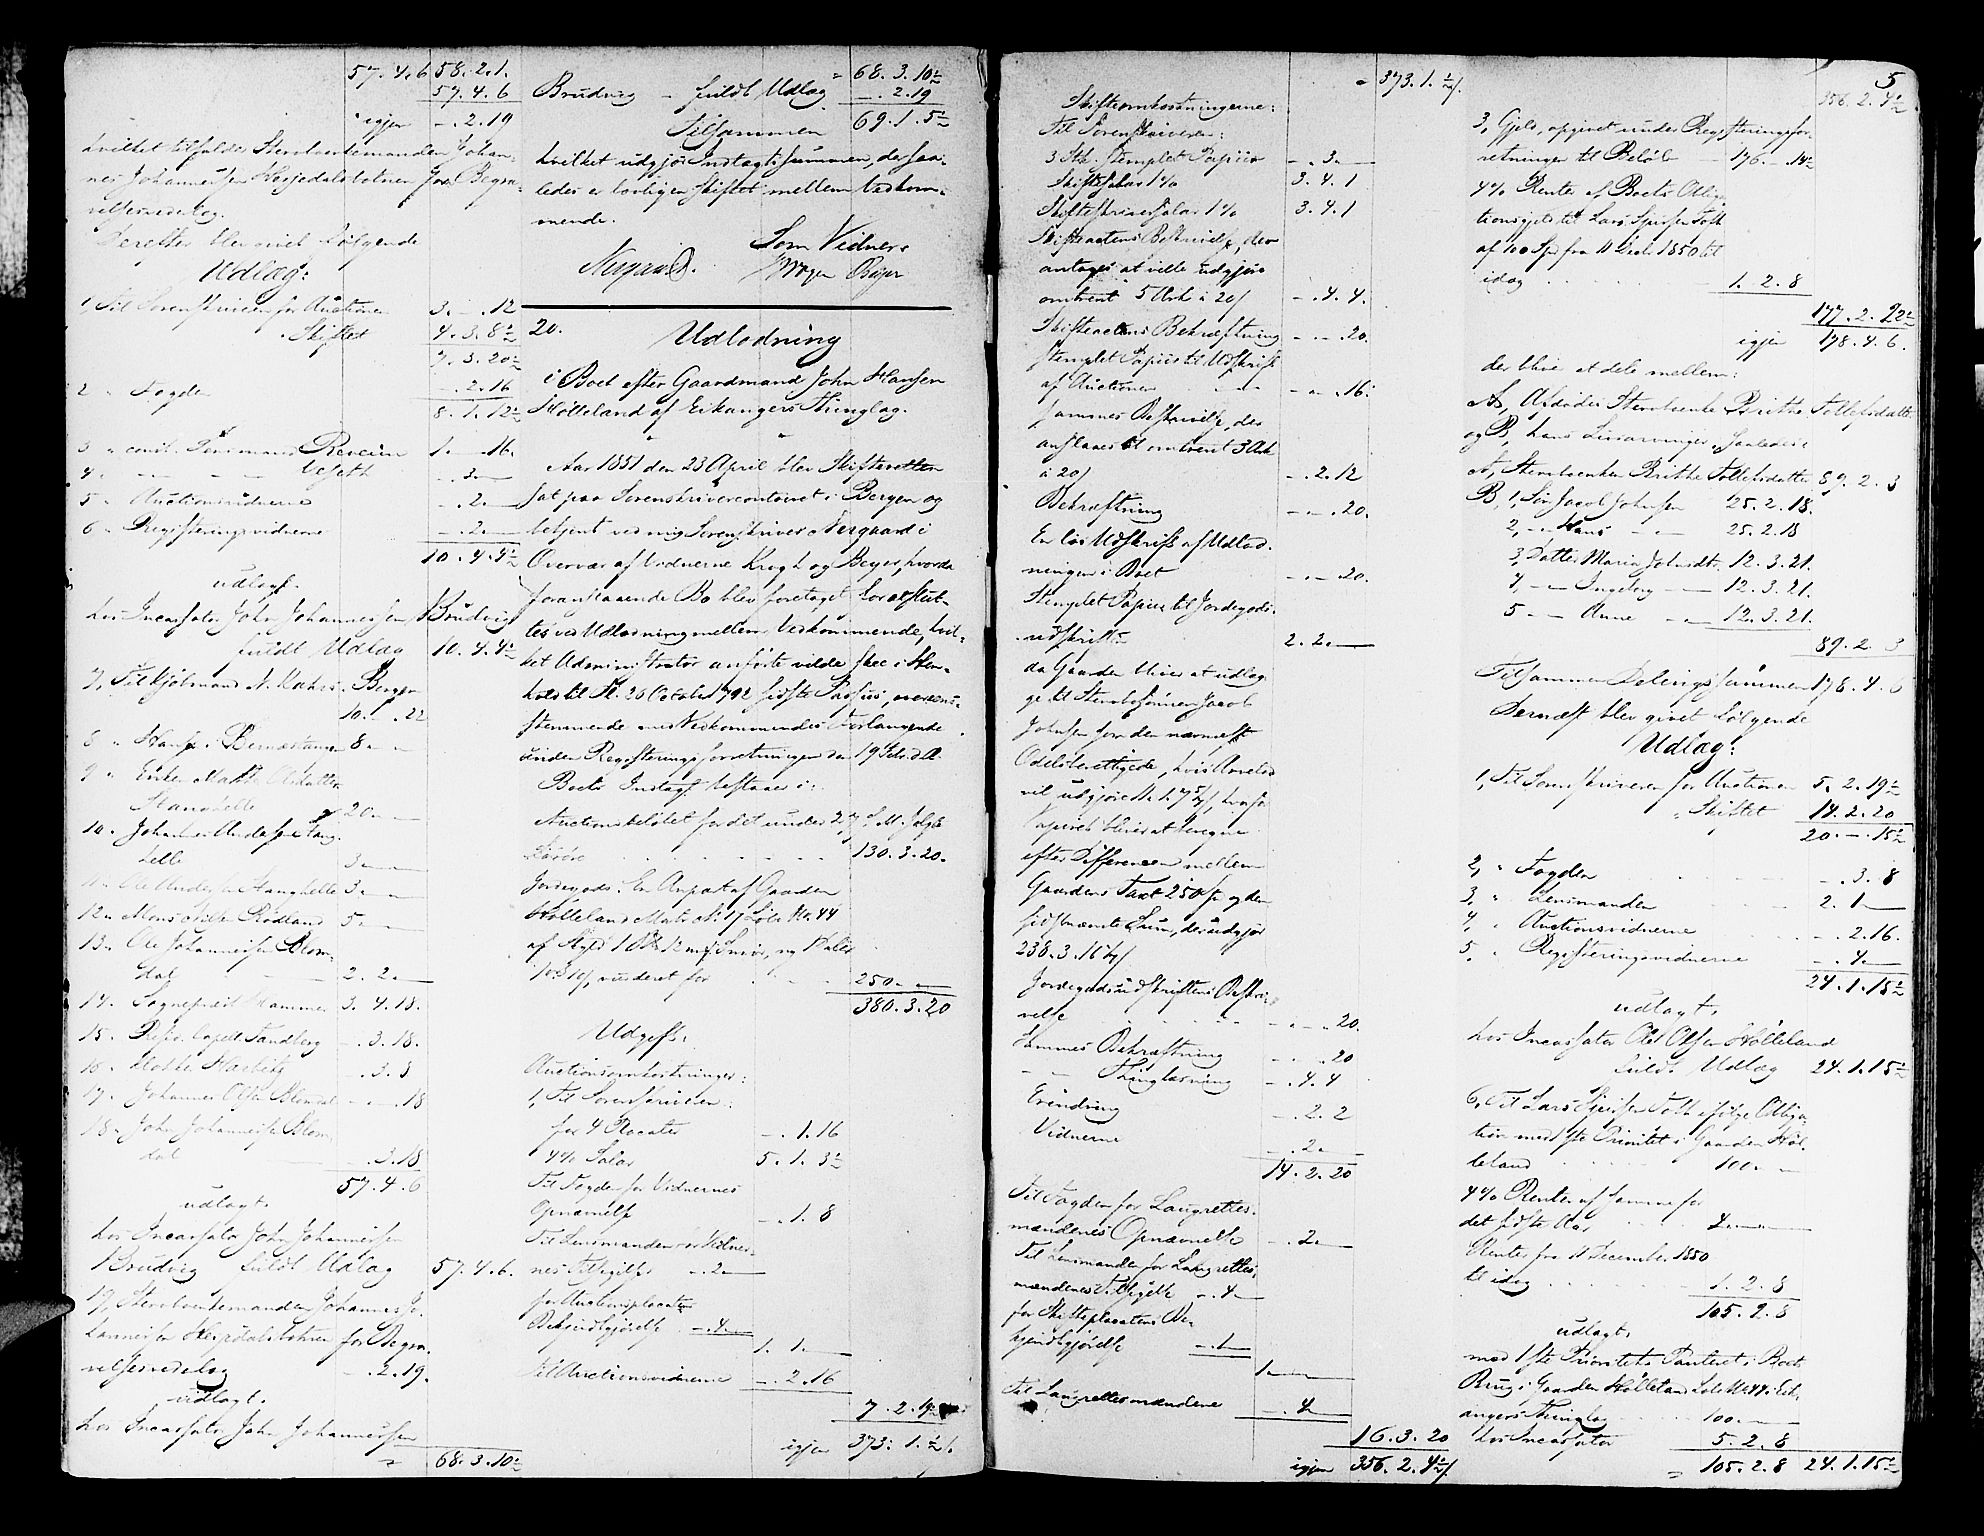 57.4.6 58.2.1.
57.4.6
igjen -.2.19
hvilket tilfalder Stervboenkemanden Johan-
nes Johannessen Hesjedalstotnen for Begra-
velsesvederlag.
Derefter blev givet følgende
Udlæg:
1, Til Sorenskriveren for Auctionen 3.-.12
" Skiftet 4.3.8½
7.3.20½
2 " Fogden -.2.16
8.1.12½
3 " const. Lensmand 1.-.16.
4 " -.3.-
5 " Auctionsvidnerne -.2.-
6 " Registreringsvidnerne -.2.-
10.4.4½
udlagt.
hos Incassator John Johannessen Brudvig
fuldt Udlæg 10.4.4½
7, Til Kjøbmand N. Bergen
10.-.22
8 " Hans Bernæstangen 8.-.-
9 " Enken Olsdatter
Stanghelle 20.-.-
10 " Johannes Andersen Stang-
helle 3.-.-
11 " Ole Andersen Stanghelle 3.-.-
12 " Mons Rødland 5.-.-
13 " Ole Johannessen Blom-
dal 2.2.-
14 " Sognepræst Hammer 3.4.18.
15 " Resid. Capell. Sandberg -.3.18.
16 " Klokker Harbitz -.3.3
17 " Johannes Olsen Blomdal -.-.18
18 " John Johannessen Blom-
dal -.3.18
57.4.6
udlagt.
hos Incassator John Johannessen
Brudvig fuldt Udlæg 57.4.6.
19, Stervboenkemanden Johannes Jo-
hannessen Hesjedalstotnen for Begra-
velsesvederlag -.2.19.
udlagt.
hos Incassator John Johannessen
68.3.10½
68.3.10½
Brudvig - fuldt Udlæg -.2.19
Tilsammen 69.1.5½
hvilket udgjør Indtægtssummen, der saa-
ledes er lovligen skiftet mellem Vedkom-
mende.
Som Vidner
Nergaard. Krogh Beyer
20. Udlodning
i Boet efter Gaardmand John Hansen
Hølleland af Eikangers Thinglag.
Aar 1851 den 23 April blev Skifteretten
sat paa Sorenskrivercontoiret i Bergen og
betjent ved mig Sorenskriver Nergaard i
Overvær af Vidnerne Krogh og Beyer, hvorda
foranstaaende Bo blev foretaget for at slut-
tes ved Udlodning mellem Vedkommende, hvil-
ket Administrator anførte vilde skee i Hen-
hold til Pl. 26 October 1792 sidste Passus, overens-
stemmende med Vedkommendes Forlangende
under Registreringsforretningen den 19 Febr. d.A.
Boets Indtægt bestaaer i:
Auctionsbeløbet for det under 27 f.M. solgte
Løsøre 130.3.20.
Jordegods: En Anpart af Gaarden
Hølleland Matr. No. 17 Løbe No. 44
af Skyld 1 12 mrk Smør, ny Daler
10 s, vurderet for 250.-.-
380.3.20
Udgift:
Auctionsomkostninger:
1, Til Sorenskriveren:
for 4 Placater -.1.16
4% Salar 5.1.3½
Til Fogden for Vidnernes
Opnævnelse -.1.8
Til Lensmanden for Vidner-
nes Tilsigelse -.2.-
for Auctionsplacatens
Bekjendtgjørelse -.4.-
1.1.-
Til Auctionsvidnerne -.2.16
7.2.4½
igjen 373.1.½
373.1.½
Skifteomkostningerne:
Til Sorenskriveren:
3 Stk. stemplet Papiir -.3.-
Skiftesalar 1% 3.4.1
Skifteskriversalar 1% 3.4.1
Skifteactens Beskrivelse, der
antages at ville udgjøre
omtrent 5 Ark à 20 s -.4.4.
Skifteactens Bekræftning -.-.20.
stemplet Papiir til Udskrift
af Auctionen -.-.16.
sammes Beskrivelse, der
anslaaes til omtrent 3 Ark
à 20 s -.2.12
Bekræftning -.-.20.
En løs Udskrift af Udlod-
ningen i Boet -.-.20.
Stemplet Papiir til Jordegods-
udskriften 2.2.-
da Gaarden bliver at udlæg-
ge til Stervbosønnen Jacob
Johnsen som den nærmest
Odelsberettigede, hvis Arvelod
vil udgjøre , hvorfor
Papiret bliver at beregne
efter Differencen mellem
Gaardens Taxt 250 Sp og den
sidstnævnte Sum, der udgjør
238.3.16½ s
Jordegodsudskriftens Beskri-
velse -.-.20.
Sammes Bekræftning -.-.20
" Thinglæsning -.4.4
Erindring -.2.2
Vidnerne -.2.-
14.2.20
Til Fogden for Laugrettes-
mændenes Opnævnelse -.2.-
Til Lensmanden for Laugrettes-
mændenes Tilsigelse -.4.-
for Skifteplacatens Be-
kjendtgjørelse -.1.-
1.-.-
Til Laugrettesmændene -.4.-
16.3.20
igjen 356.2.4½ s
5
356.2.4½
3, Gjeld, opgivet under Registreringsfor-
retningen til Beløb 176.-.14½
4% Renter af Boets Obliga-
tionsgjeld til Lars Sjursen Toft
af 100 Spd fra 11 Decbr 1850 til
idag 1.2.8
177.2.22½
igjen 178.4.6.
der blive at dele mellem:
A, Afdødes Stervboenke Brithe Tollefsdatter
og B, hans Livsarvinger, saaledes:
A, Stervboenken Brithe Tollefsdatter 89.2.3
B, 1, Søn Jacob Johnsen 25.2.18.
2, " Hans " 25.2.18
3, Datter Maria Johnsdtr. 12.3.21.
4, " Ingeborg " 12.3.21.
5 " Anne " 12.3.21.
89.2.3
Tilsammen Delingssummen 178.4.6
Dernæst blev givet følgende
Udlæg:
1, Til Sorenskriveren for Auctionen 5.2.19½
" Skiftet 14.2.20
20.-.15½
2, " Fogden -.3.8
3, " Lensmanden 2.1.-
4, " Auctionsvidnerne -.2.16.
5, " Registreringsvidnerne -.4.-
24.1.15½
udlagt.
hos Incassator Ole Olsen Hølleland
fuldt Udlæg 24.1.15½
6, Til Lars Sjursen Toft ifølge Obliga-
tion med 1ste Prioritet i Gaarden Høl-
leland 100.-.-
4% Renter af samme for
det sidste Aar 4.-.-
Renter fra 11 December 1850
til idag 1.2.8
105.2.8
udlagt.
med 1ste Prioritets Panteret i Boets
Brug i Gaarden Hølleland Løbe No 44 i Eik-
angers Thinglag 100.-.-
hos Incassator 5.2.8
105.2.8 24.1.15½